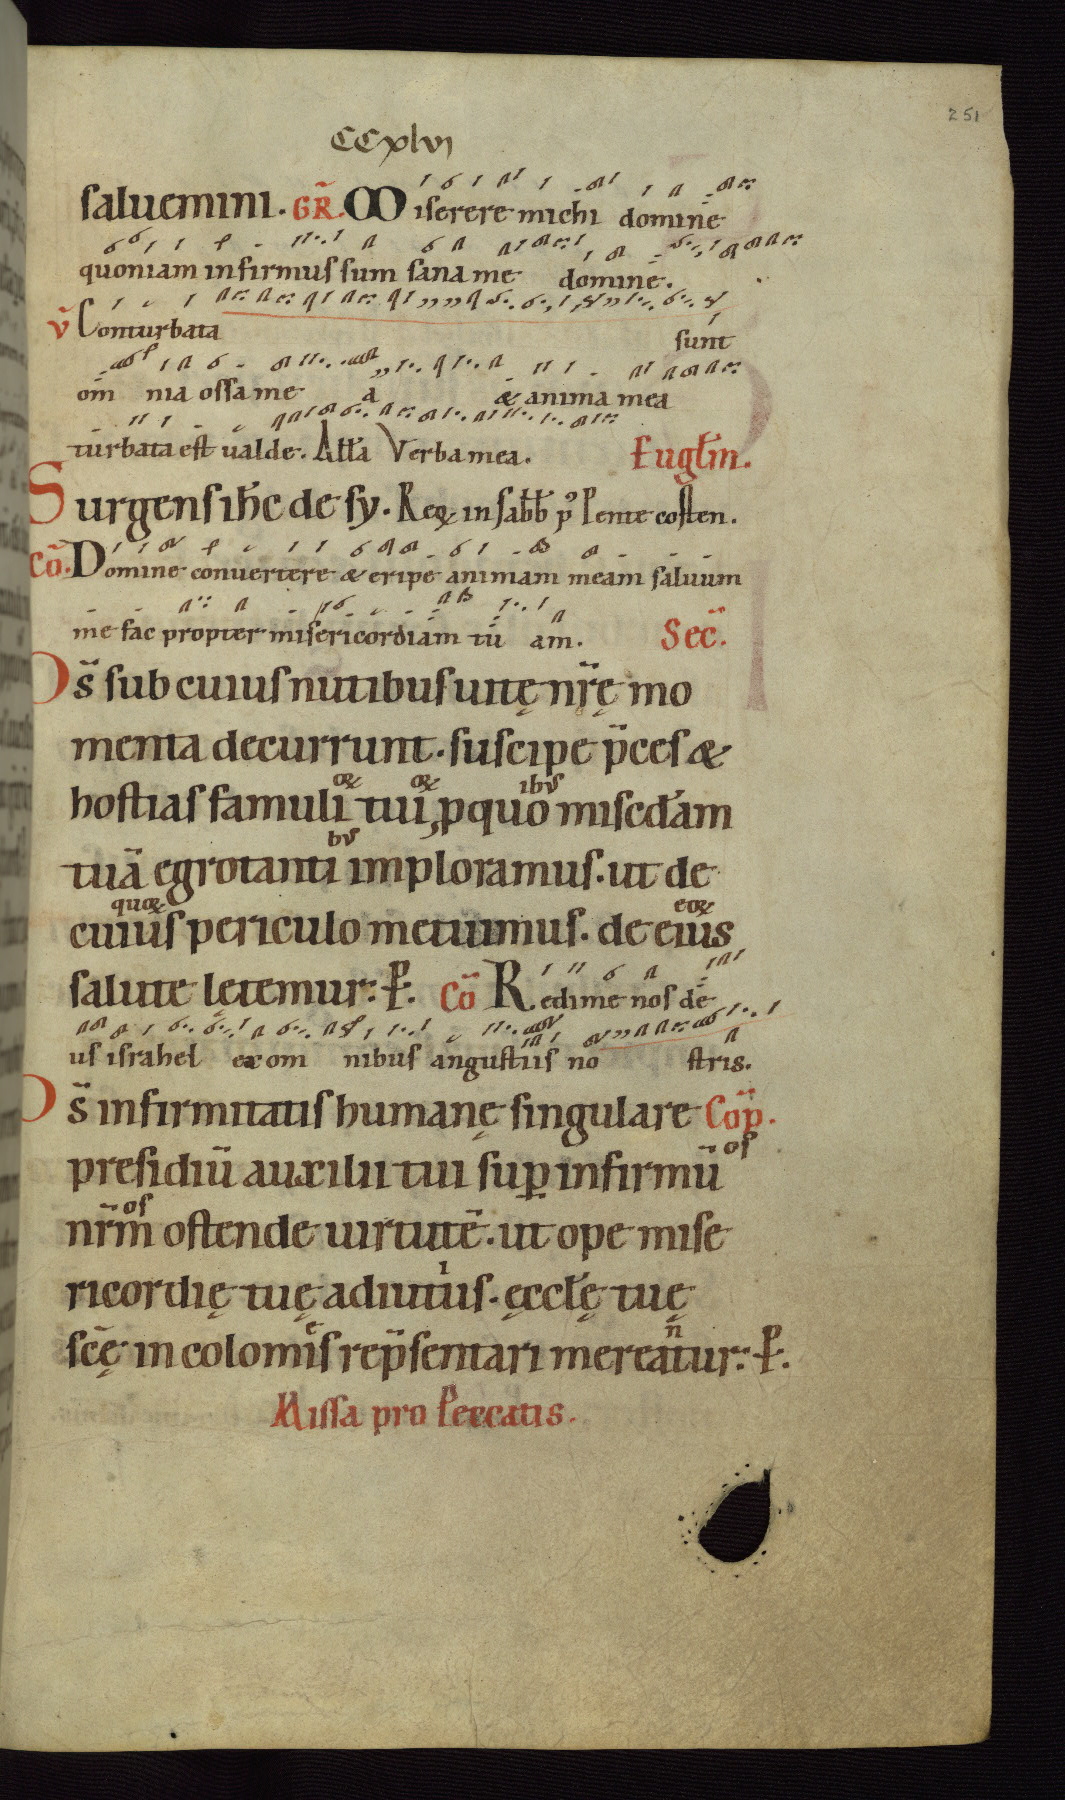 251
CCxlvi
saluemini. GR̃. Miserere michi domine
quoniam infirmus sum sana me domine.
v̄ Conturbata sunt
om̄ nia ossa me a & anima mea
turbata est ualde. All'a Verba mea. Eugl'm.
Surgens ih̄c de sy. Req̄ in sabb̄ p' Pentecosten.
Cō. Domine conuertere & eripe animam meam saluum
me fac propter misericordiam tū am. Sec̄.
Ds̄ sub cuius nutibus uitę nr̄ę mo
menta decurrunt. suscipe p̄ces &
hostias famuli tui, p quo misc̄dam
tuā egrotanti imploramus. ut de
cuius periculo metuimus. de eius
salute lętemur: P. Cō Redime nos de
us israhel ex om nibus angustiis no stris.
Ds̄ infirmitatis humanę singulare Cōp.
presidiū auxilii tui sup infirmū os
nr̄m os ostende uirtutē. ut ope mise
ricordię tuę adiutus. ęccl'ę tuę
sc̄ę incolomis rep̄sentari mereatur: P.
Missa pro Peccatis.